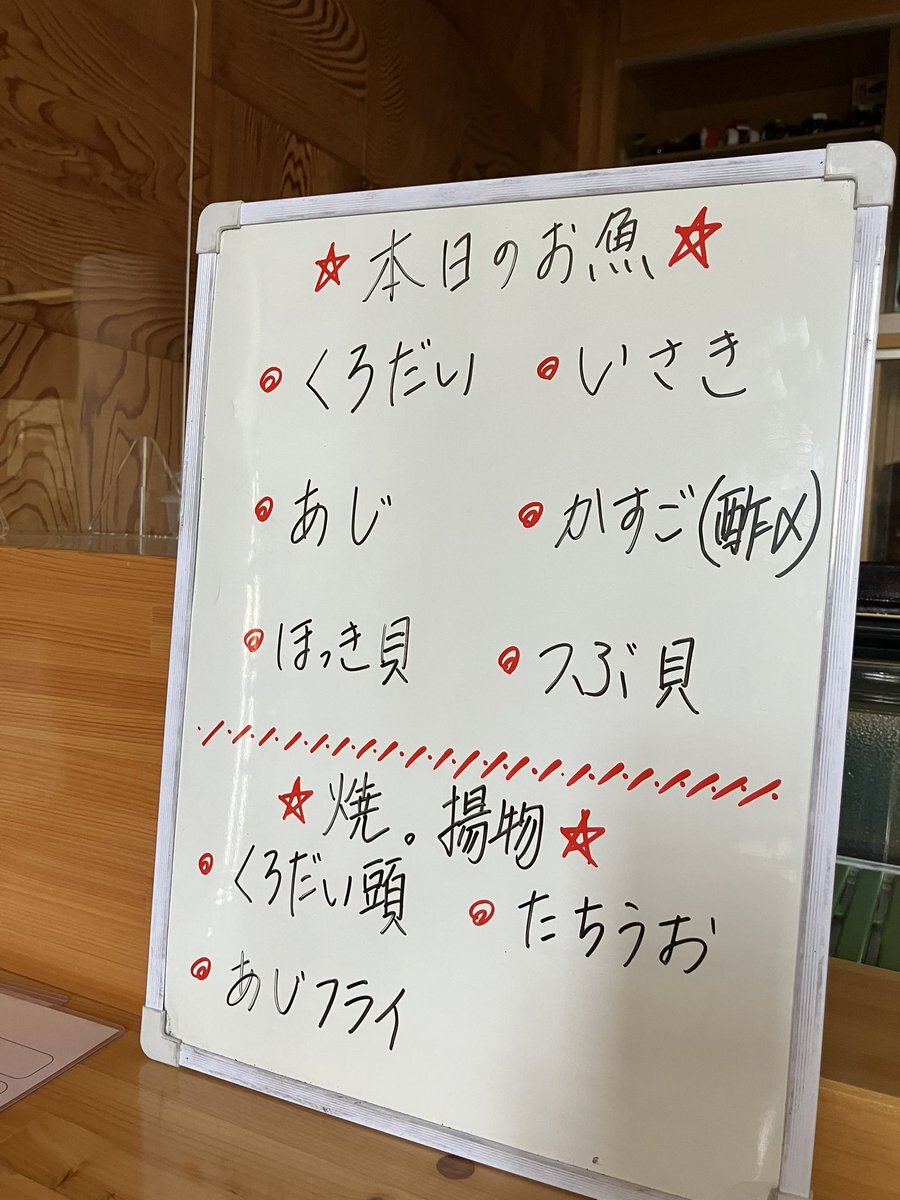 ☆本日のお魚☆
くろだい いさき
あじ かすご(酢〆)
ほっき貝 つぶ貝
☆焼。揚物☆
くろだい頭 たちうお
あじフライ